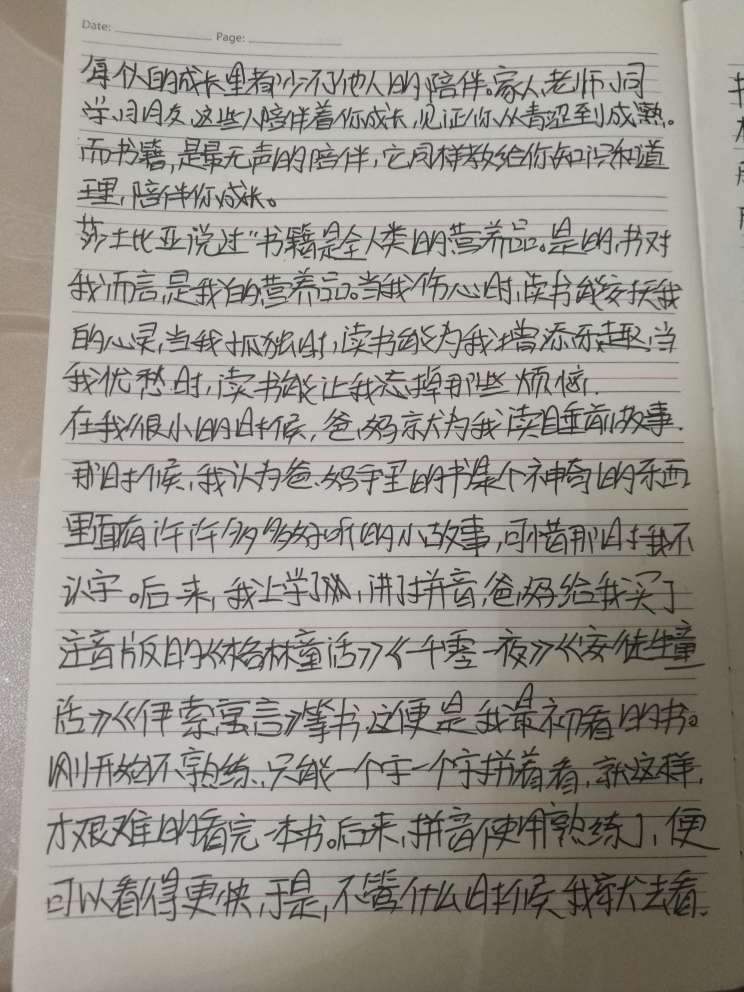 Date: Page:
每个人的成长里都少不了他人的陪伴。家人、老师、同
学、同朋友,这些人陪伴着你成长,见证你从青涩到成熟。
而书籍,是最无声的陪伴,它同样教给你知识和道
理,陪伴你成长。
莎士比亚说过“书籍是全人类的营养品。是的,书对
我而言,是我的营养品。当我伤心时,读书能安抚我
的心灵,当我孤独时,读书能为我增添乐趣,当
我忧愁时,读书能让我忘掉那些烦恼.
在我很小的时候,爸、妈就为我读睡前故事.
那时候,我认为爸、妈手里的书是个神奇的东西
里面有许许多多好听的小故事,可惜那时我不
认字。后来,我上学了,讲了拼音,爸、妈给我买了
注音版的《格林童话》《一千零一夜》《安徒生童
话》《伊索寓言》等书,这便是我最初看的书。
刚开始不熟练,只能一个字一个字拼着看,就这样,
才艰难的看完一本书。后来,拼音使用熟练了,便
可以看得更快,于是,不管什么时候,我就去看.